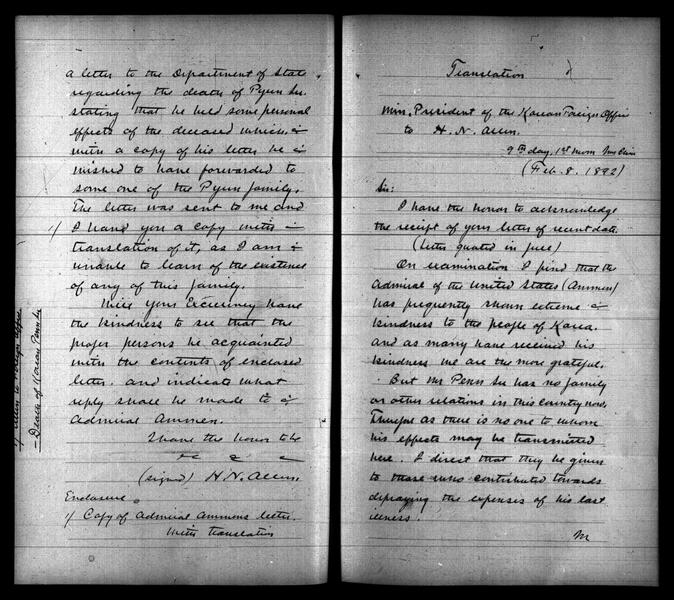 a letter to the Department of State
regarding the death of Pyun Su.
stating that he held some personal
effects of the deceased which,
with a copy of his letter he
wished to have forwarded to
some one of the Pyun family.
The letter was sent to me and
1/ I hand you a copy with
translation of it, as I am
unable to learn of the existence
of any of this family.
Will your Excellency have
the kindness to see that the
proper persons be acquainted
with the contents of enclosed
letter. and indicate what
reply shall be made to
Admiral Ammen.
I have the honor to be
(signed) H. N. Allen.
Enclosure.
1/ Copy of Admiral Ammens letter.
with translation
Allen to Foreign Office
- Death of Korean Penn Su
Translation
Min, President of the Korean Foreign Office
to H. N. Allen.
9th day, 1st moon
(Feb. 8. 1892)
Sir:
I have the honor to acknowledge
the receipt of your letter of recent date.
(Letter quoted in full)
On examination I find that the
Admiral of the United States (Ammen)
has frequently shown extreme
kindness to the people of Korea.
and as many have received his
kindness we are the more grateful.
But Mr Penn Su has no family
or other relations in this country now.
Therefore as there is no one to whom
his effects may be transmitted
here. I direct that they be given
to those who contributed towards
defraying the expenses of his last
illness.
M